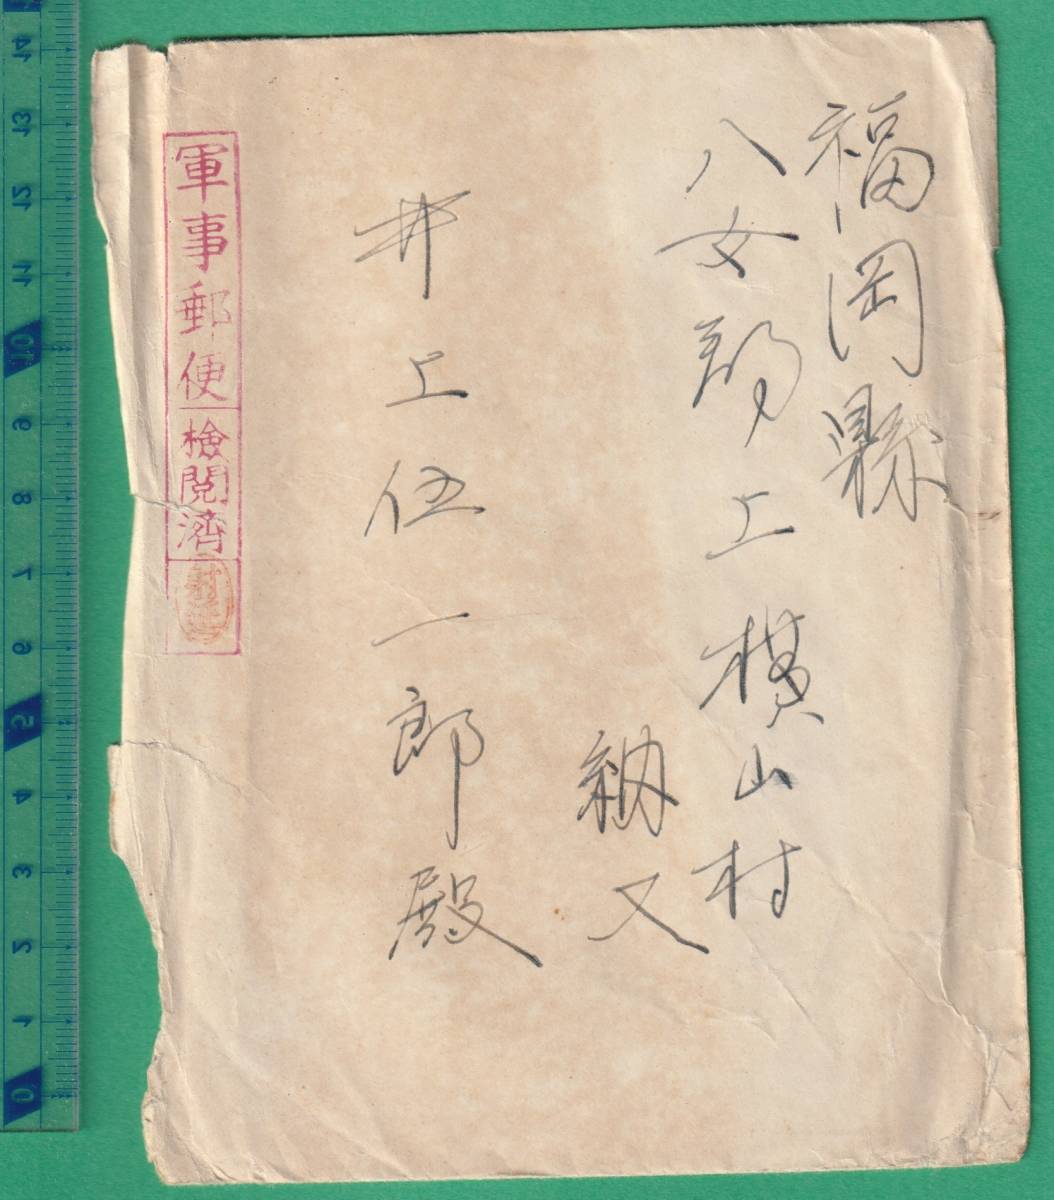 福岡縣
八女郡上横山村
納又
井上伍一郎殿
軍事郵便
検閲済
14 13 12 11 10 9 8 7 6 5 4 3 2 1 0